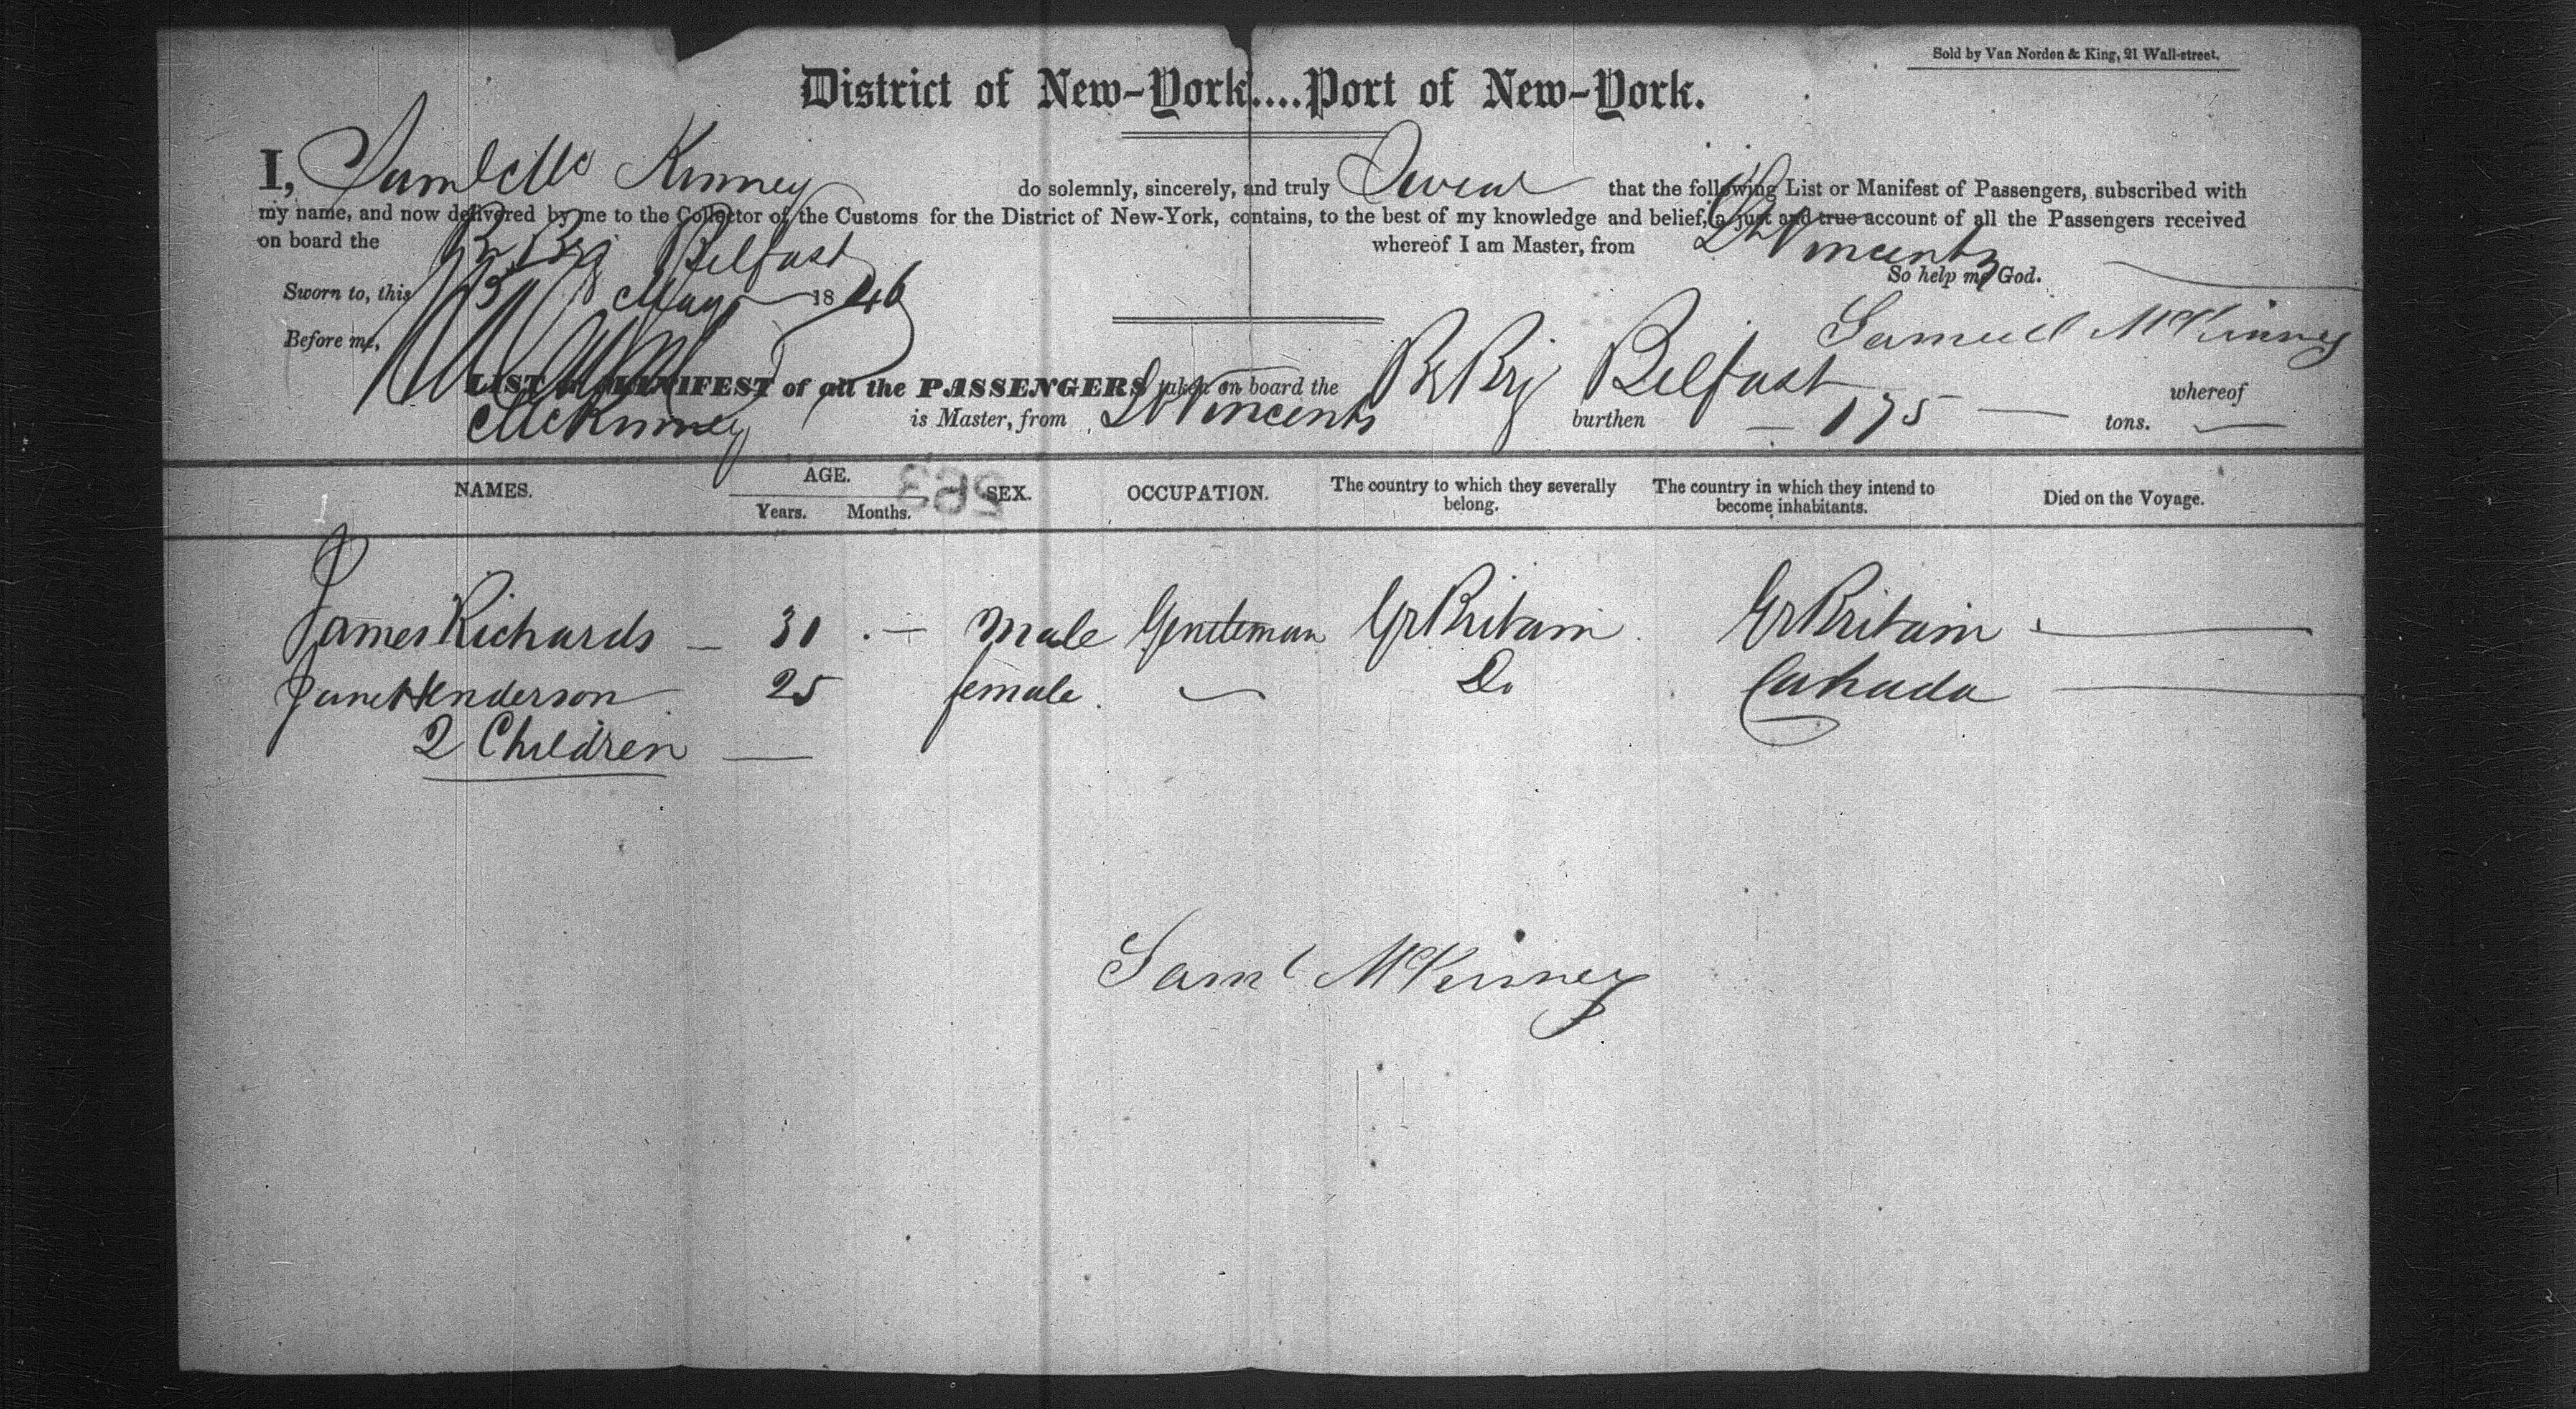 Sold by Van Norden & King, 21 Wall-street.
District of New-York....Port of New-York.
I, Saml Mc Kinney do solemnly, sincerely, and truly Swear that the following List or Manifest of Passengers, subscribed with
my name, and now delivered by me to the Collector of the Customs for the District of New-York, contains, to the best of my knowledge and belief, a just and true account of all the Passengers received
on board the Br Brig Belfast whereof I am Master, from St Vincents
So help me God.
Sworn to, this 18 May 1846
Samuel McKinney
Before me,
LIST or MANIFEST of all the PASSENGERS taken on board the Br Brig Belfast whereof
McKinney is Master, from St Vincents burthen 175 tons.
NAMES. AGE. Years. Months. SEX. OCCUPATION. The country to which they severally belong. The country in which they intend to become inhabitants. Died on the Voyage.
James Richards — 31 . — Male Gentleman Gr Britain Gr Britain —
Jane Henderson 25 female . — Do Canada —
2 Children —
Saml McKinney